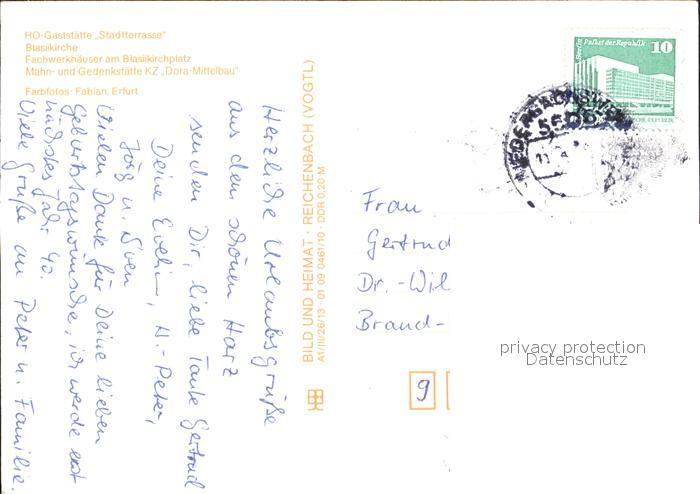 HO-Gaststätte „Stadtterrasse"
Blasiikirche
Fachwerkhäuser am Blasiikirchplatz
Mahn- und Gedenkstätte KZ „Dora-Mittelbau"
Farbfotos: Fabian, Erfurt
Herzliche Urlaubsgrüße
aus dem schönen Harz
senden Dir, liebe Tante Gertrud
Deine Evelin, H.-Peter,
Jörg u. Sven
Vielen Dank für Deine lieben
Geburtstagswünsche, ich werde erst
nächstes Jahr 40.
Viele Grüße an Peter u. Familie.
BILD UND HEIMAT · REICHENBACH (VOGTL)
A1/III/26/13 · 01 09 0461/10 · DDR 0,20 M
Berlin Palast der Republik 10
Frau
Gertrud
Dr.-Wil
Brand-
9
privacy protection
Datenschutz